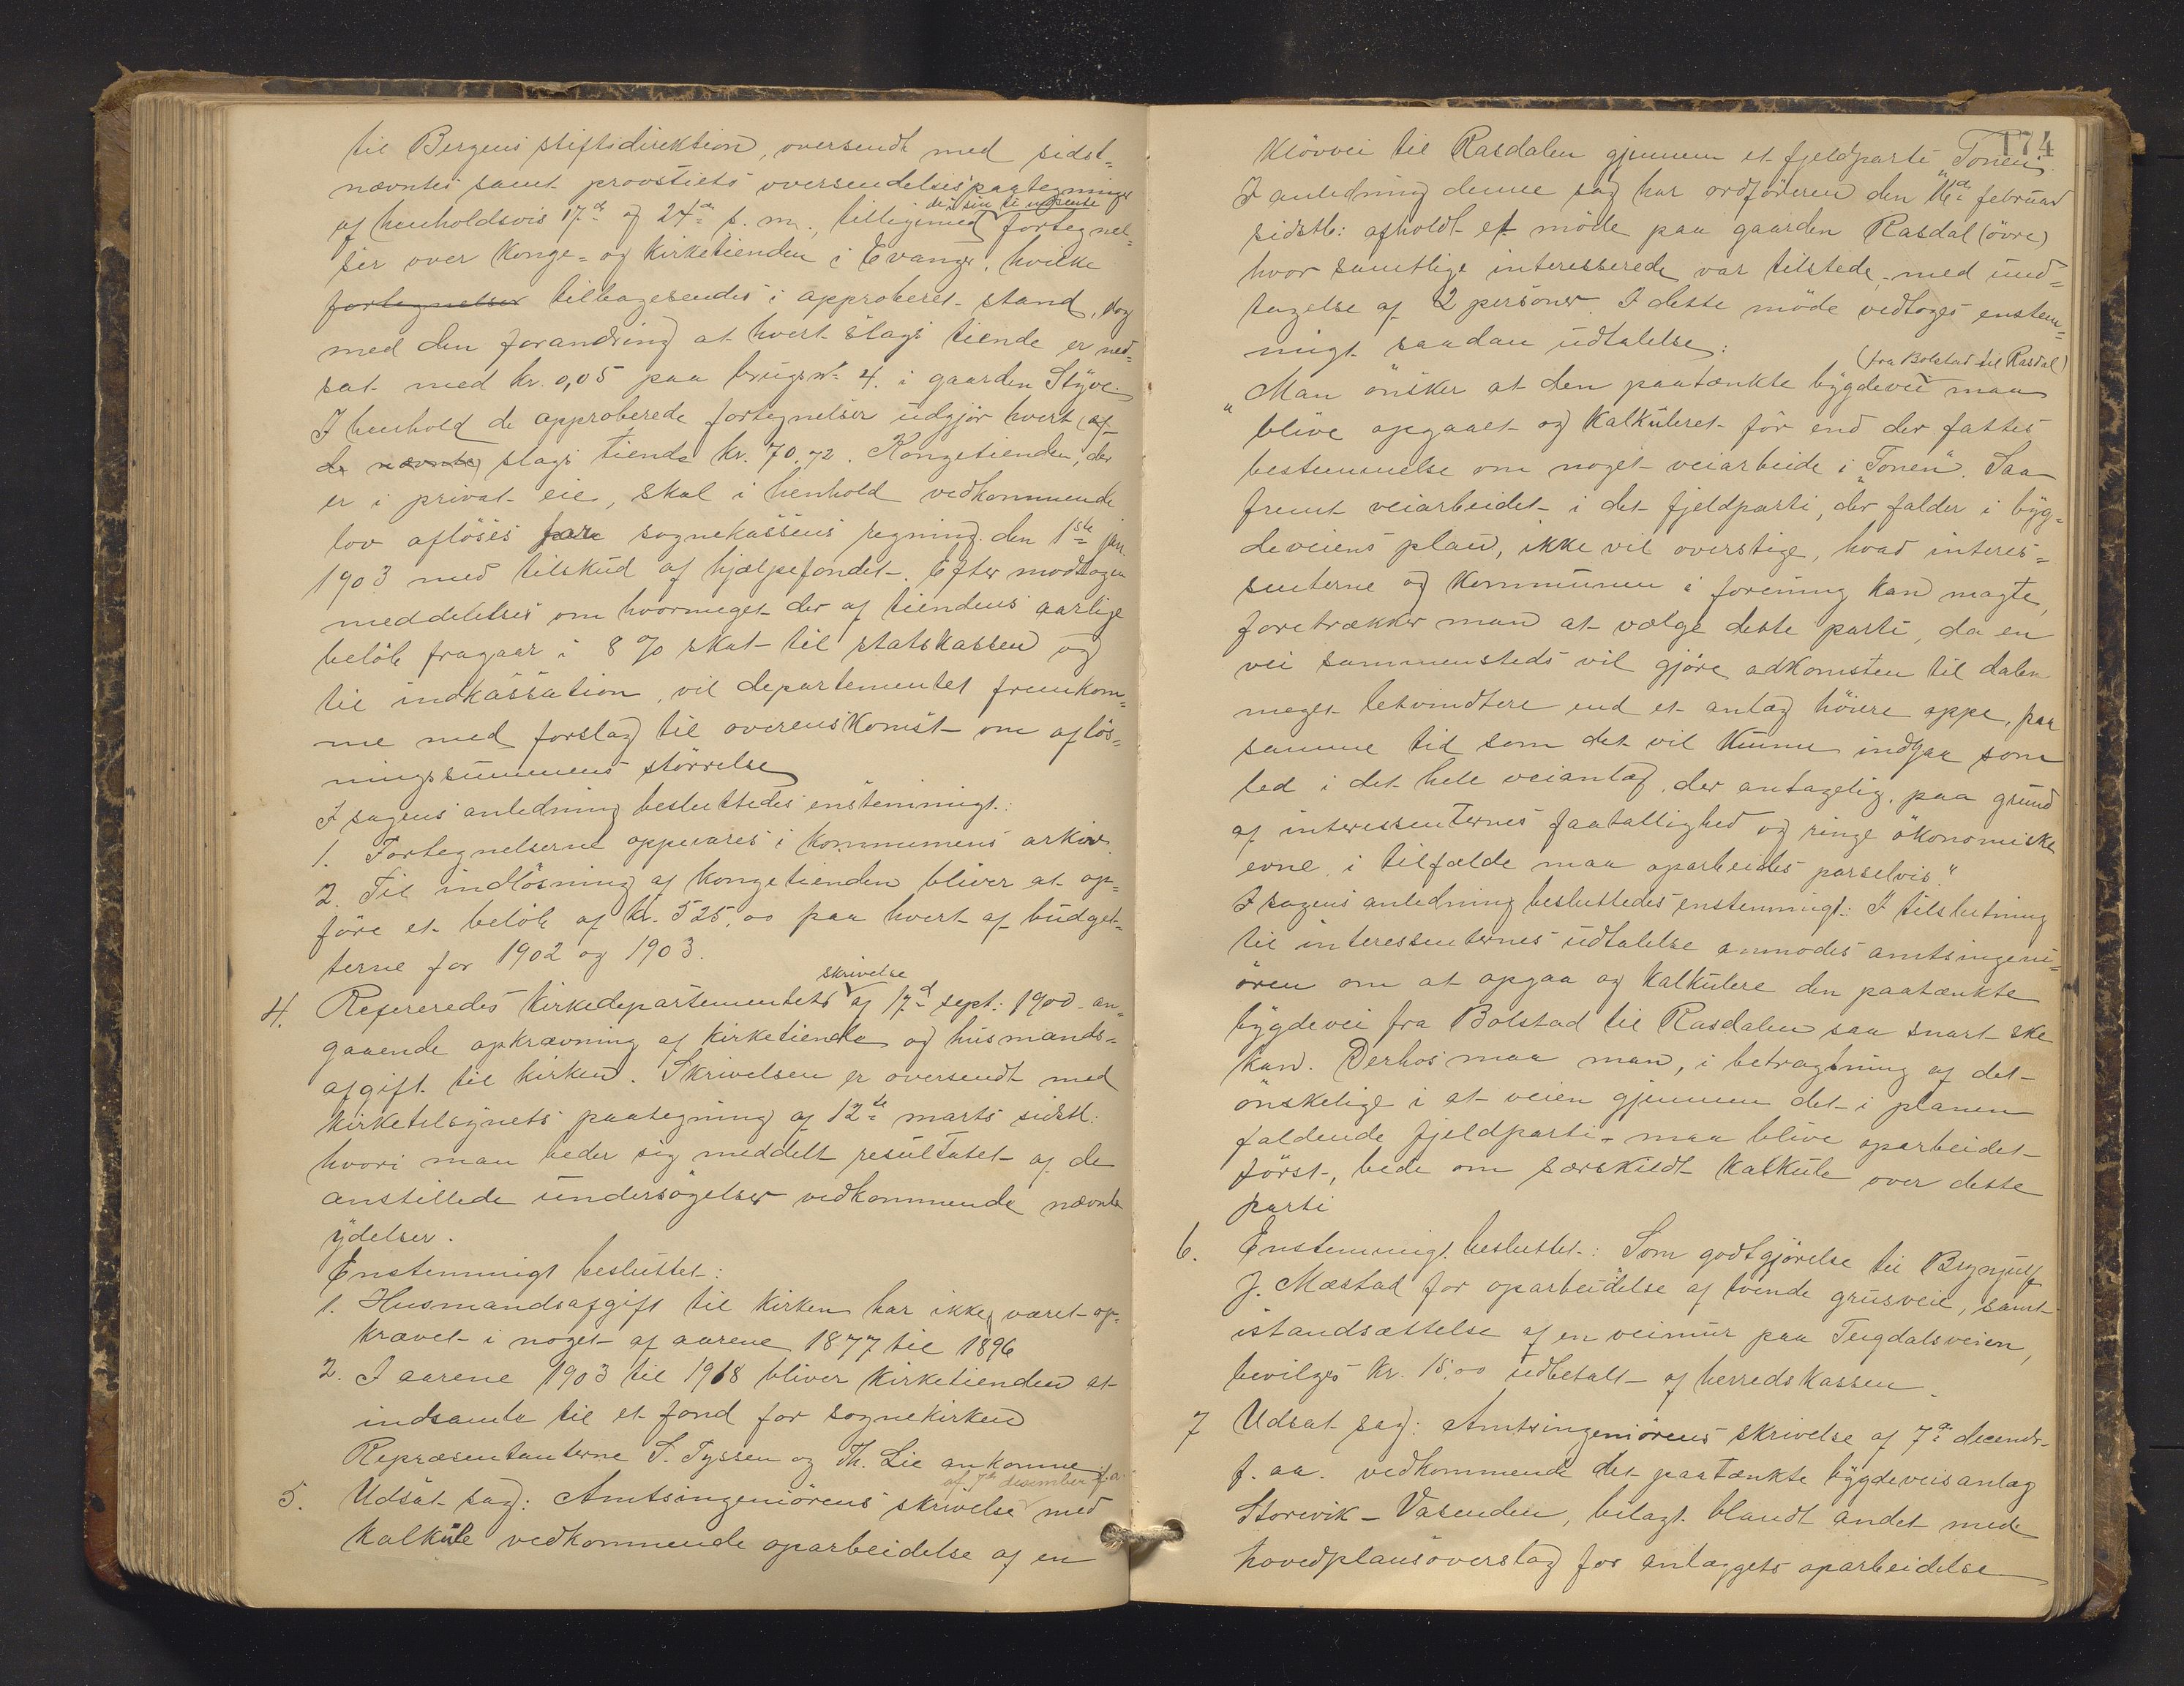 til Bergens stiftsdirektion, oversendt med sidst-
nævntes samt provstiets oversendelsespaategninger
af henholdsvis 17de og 24de s. m., tilligemed fortegnel-
ser over Konge- og Kirketienden i Evanger, hvilke
fortegnelser tilbagesendes i approberet stand, dog
med den forandring at hvert slags tiende er ned-
sat med kr. 0,05 paa brugsnr 4. i gaarden Styve.
I henhold de approberede fortegnelser udgjör hvert af
de nævnte slags tiende kr. 70.72. Kongetienden, der
er i privat eie, skal i henhold vedkommende
lov aflöses for sognekassens regning den 1ste jan.
1903 med tilskud af hjælpefondet. Efter modtagen
meddelelses om hvormeget der af tiendens aarlige
belöb fragaar i 8 % skat til statskassen og
til indkassation, vil departementet fremkom-
me med forslag til overenskomst om aflös-
ningssummens störrelse
I sagens anledning besluttedes enstemmigt:
1. Fortegnelserne oppevares i kommunens arkiv.
2. Til indlösning af kongetienden bliver at op-
före et belöb af kr. 525,00 paa hvert af budget-
terne for 1902 og 1903.
skrivelse
4. Refereredes Kirkedepartementets af 17de sept: 1900 an-
gaaende opkrævning af kirketiende og husmands-
afgift til kirken. Skrivelsen er oversendt med
kirketilsynets paategning af 12te marts sidstl:
hvori man beder sig meddelt resultatet af de
anstillede undersögelser vedkommende nævnte
ydelser.
Enstemmigt besluttet:
1. Husmandsafgift til Kirken har ikke været op-
krævet i noget af aarene 1877 til 1896
2. I aarene 1903 til 1918 bliver Kirketienden at
indsamle til et fond for sognekirken
Repræsentanterne S. Tyssen og Th. Lie ankomne
af 7de desember f.a.
5. Udsat sag: Amtsingeniörens skrivelse med
kalkule vedkommende oparbeidelse af en
174
Klövvei til Rasdalen gjennem et fjeldparti „Tonen".
I anledning denne sag har ordföreren den 16de februar
sidstl: afholdt et möde paa gaarden Rasdal (övre)
hvor samtlige interesserede var tilstede med und-
tagelse af 2 personer. I dette möde vedtoges enstem-
migt saadan udtalelse:
(fra Bolstad til Rasdal)
„Man önsker at den paatænkte bygdevei maa
blive opgaaet og kalkuleret för end der fattes
bestemmelse om noget veiarbeide i „Tonen". Saa-
fremt veiarbeidet i det fjeldparti, der falder i byg-
deveiens plan, ikke vil overstige, hvad interes-
senterne og Kommunen i forening kan magte,
foretrækker man at vælge dette parti, da en
vei sammensteds vil gjöre adkomsten til dalen
meget letvindtere end et anlæg höiere oppe, paa
samme tid som det vil kunne indgaa som
led i det hele veianlæg, der antagelig, paa grund
af interessenternes faatallighed og ringe ökonomiske
evne, i tilfælde maa oparbeides parselvis."
I sagens anledning besluttedes enstemmigt: I tilslutning
til interessenternes udtalelse anmodes amtsingeni-
ören om at opgaa og kalkulere den paatænkte
bygdevei fra Bolstad til Rasdalen saa snart ske
kan. Derhos maa man, i betragtning af det
önskelige i at veien gjennem det i planen
faldende fjeldparti maa blive oparbeidet
först, bede om særskildt kalkule over dette
parti
6. Enstemmigt besluttet: Som godtgjörelse til Brynjulf
J. Mæstad for oparbeidelse af tvende grusveie, samt
istandsættelse af en veimur paa Teigdalsveien,
bevilges kr. 15,00 udbetalt af herredskassen.
7 Udsat sag: Amtsingeniörens skrivelse af 7de decembr.
f. aa. vedkommende det paatænkte bygdeveisanlæg
Storevik - Vasenden, bilagt blandt andet med
hovedplansoverslag for anlæggets oparbeidelse